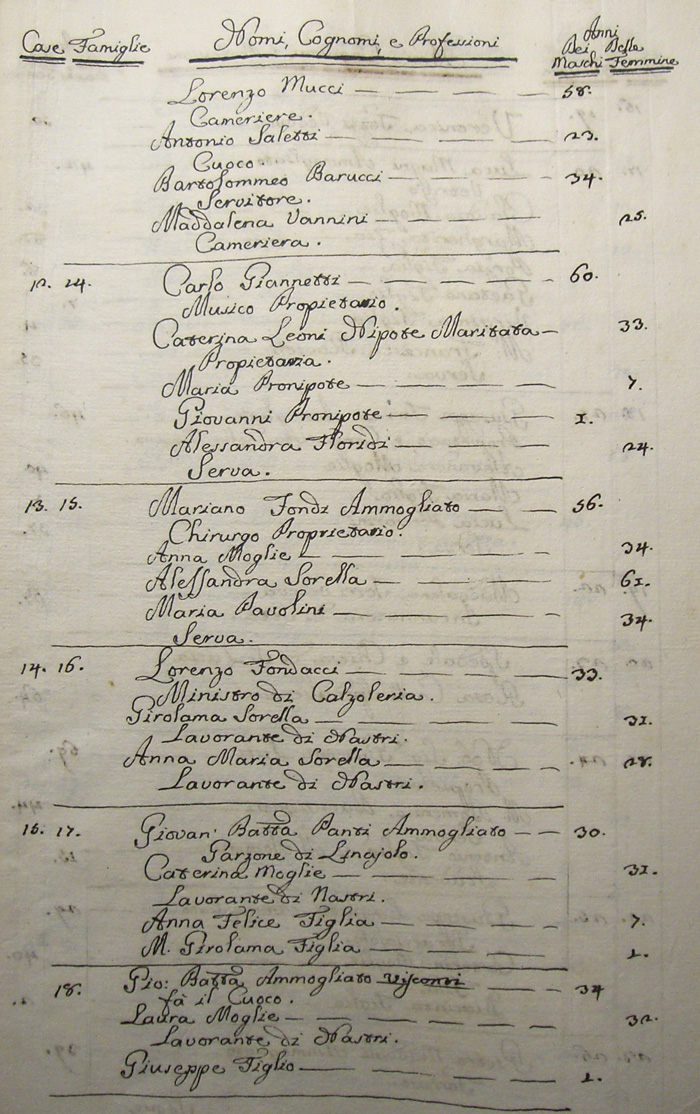 Case Famiglie Nomi, Cognomi, e Professioni Anni Dei Maschi Delle Femmine
Lorenzo Mucci 58.
Cameriere.
Antonio Saletti 23.
Cuoco.
Bartolommeo Barucci 34.
Servitore.
Maddalena Vannini 25.
Cameriera.
12. 24. Carlo Giannetti 60.
Musico Propietario.
Caterina Leoni Nipote Maritata 33.
Propietaria.
Maria Pronipote 7.
Giovanni Pronipote 1.
Alessandra Floridi 24.
Serva.
13. 15. Mariano Fondi Ammogliato 56.
Chirurgo Proprietario.
Anna Moglie 34.
Alessandra Sorella 61.
Maria Pavolini 34.
Serva.
14. 16. Lorenzo Fondacci 33.
Ministro di Calzoleria.
Girolama Sorella 31.
Lavorante di Nastri.
Anna Maria Sorella 28.
Lavorante di Nastri.
15. 17. Giovan: Batta Panti Ammogliato 30.
Garzone di Linajolo.
Caterina Moglie 31.
Lavorante di Nastri.
Anna Felice Figlia 7.
M. Girolama Figlia 1.
18. Gio: Batta Ammogliato Visconti 34
fà il Cuoco.
Laura Moglie 32.
Lavorante di Nastri.
Giuseppe Figlio 1.